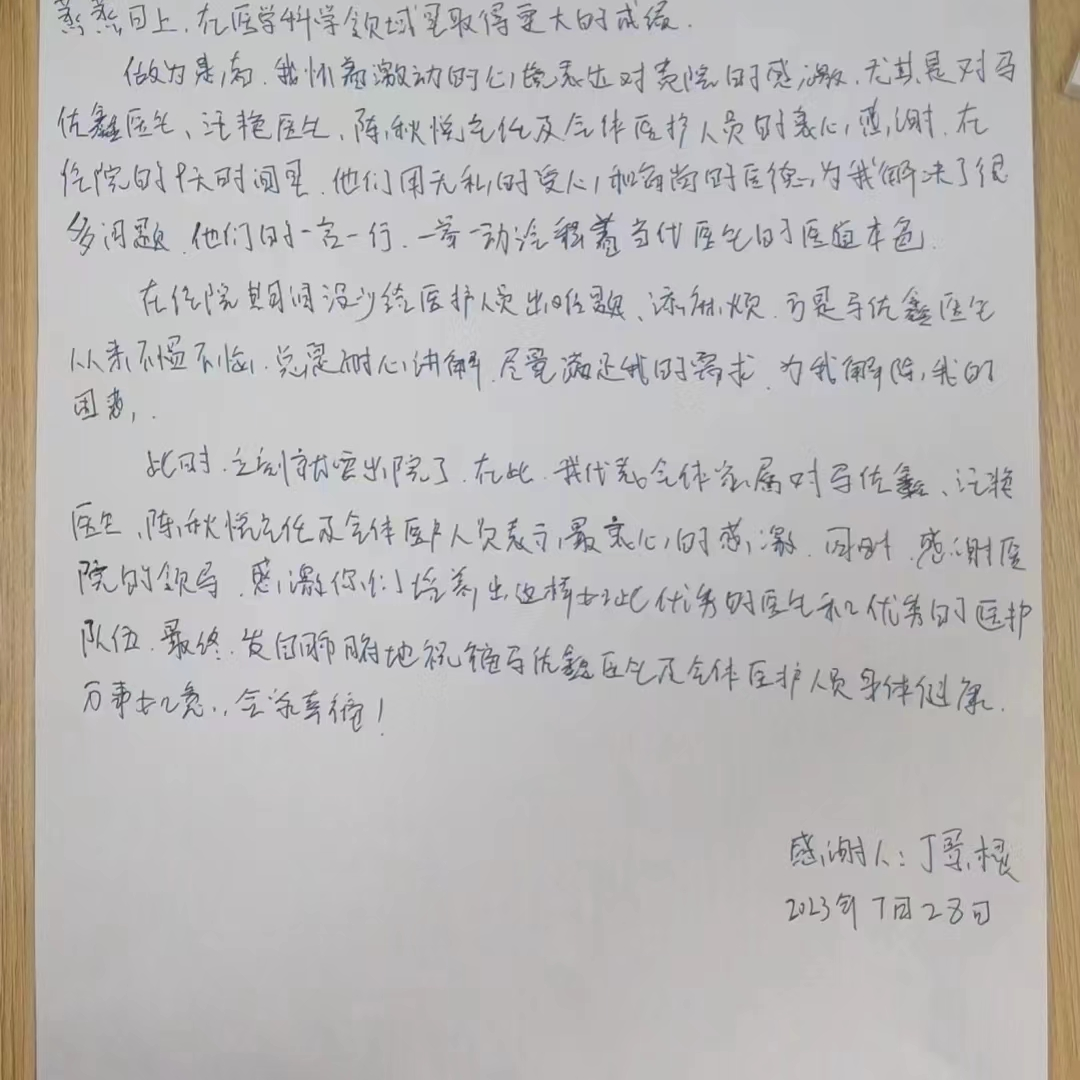 蒸蒸日上,在医学科学领域里取得更大的成绩.
做为患者.我怀着激动的心情表达对贵院的感激.尤其是对马
佐鑫医生、汪艳医生、陈秋悦主任及全体医护人员的衷心感谢.在
住院的9天时间里.他们用无私的爱心和高尚的医德,为我解决了很
多问题.他们的一言一行.一举一动诠释着当代医生的医者本色.
在住院其间没少给医护人员出难题、添麻烦.可是马佐鑫医生
从来不愠不恼.总是耐心讲解.尽量满足我的需求.为我解除我的
困惑.
此时.立刻就要出院了.在此.我代表全体家属对马佐鑫、汪艳
医生、陈秋悦主任及全体医护人员表示最衷心的感激.同时.感谢医
院的领导.感激你们培养出这样如此优秀的医生和优秀的医护
队伍.最终.发自肺腑地祝福马佐鑫医生及全体医护人员身体健康.
万事如意.,全家幸福!
感谢人:丁
2023年7月28日